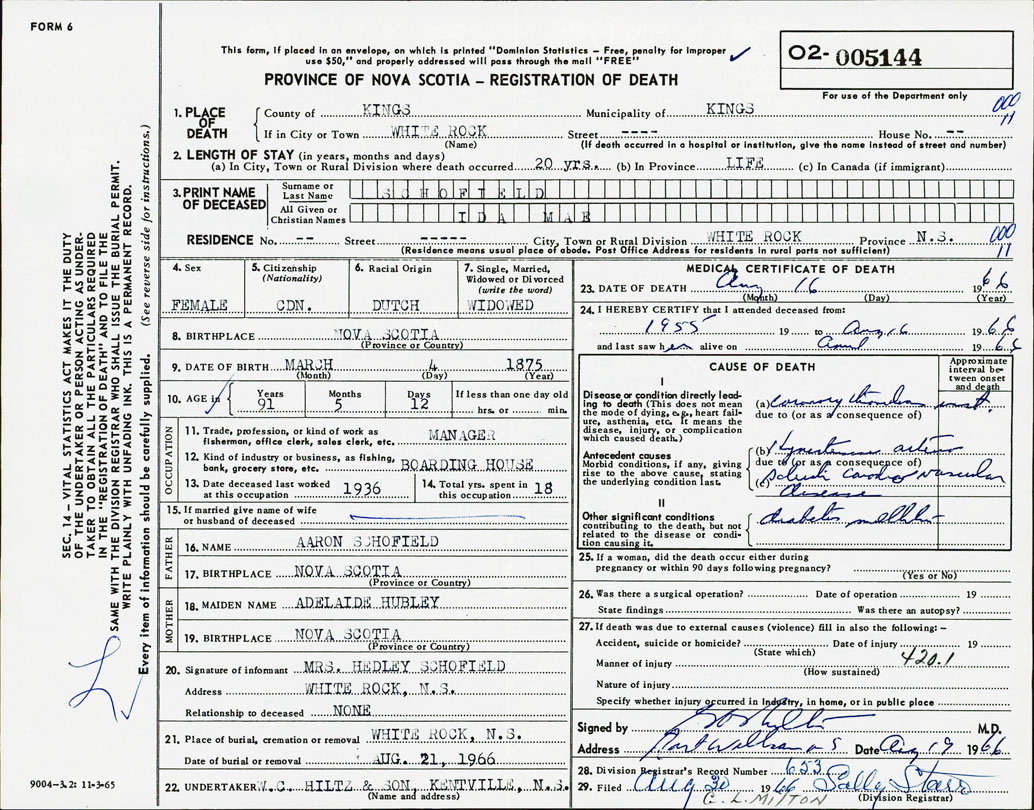 FORM 6
This form, if placed in an envelope, on which is printed "Dominion Statistics – Free, penalty for improper
use $50," and properly addressed will pass through the mail "FREE"
PROVINCE OF NOVA SCOTIA – REGISTRATION OF DEATH
02- 005144
For use of the Department only
000
11
1. PLACE OF DEATH
County of KINGS Municipality of KINGS
If in City or Town WHITE ROCK Street ---- House No. --
(Name) (If death occurred in a hospital or institution, give the name instead of street and number)
2. LENGTH OF STAY (in years, months and days)
(a) In City, Town or Rural Division where death occurred 20 yrs. (b) In Province LIFE (c) In Canada (if immigrant)
3. PRINT NAME OF DECEASED
Surname or Last Name SCHOFIELD
All Given or Christian Names IDA MAE
RESIDENCE No. -- Street ----- City, Town or Rural Division WHITE ROCK Province N.S.
000
11
(Residence means usual place of abode. Post Office Address for residents in rural parts not sufficient)
4. Sex
FEMALE
5. Citizenship
(Nationality)
CDN.
6. Racial Origin
DUTCH
7. Single, Married,
Widowed or Divorced
(write the word)
WIDOWED
8. BIRTHPLACE NOVA SCOTIA
(Province or Country)
9. DATE OF BIRTH MARCH 4 1875
(Month) (Day) (Year)
10. AGE in
Years Months Days If less than one day old
91 5 12 hrs. or min.
OCCUPATION
11. Trade, profession, or kind of work as
fisherman, office clerk, sales clerk, etc. MANAGER
12. Kind of industry or business, as fishing,
bank, grocery store, etc. BOARDING HOUSE
13. Date deceased last worked
at this occupation 1936
14. Total yrs. spent in
this occupation 18
15. If married give name of wife
or husband of deceased
FATHER
16. NAME AARON SCHOFIELD
17. BIRTHPLACE NOVA SCOTIA
(Province or Country)
MOTHER
18. MAIDEN NAME ADELAIDE HUBLEY
19. BIRTHPLACE NOVA SCOTIA
(Province or Country)
20. Signature of informant MRS. HEDLEY SCHOFIELD
Address WHITE ROCK, N.S.
Relationship to deceased NONE
21. Place of burial, cremation or removal WHITE ROCK, N.S.
Date of burial or removal AUG. 21, 1966
22. UNDERTAKER W.C. HILTZ & SON, KENTVILLE, N.S.
(Name and address)
MEDICAL CERTIFICATE OF DEATH
23. DATE OF DEATH Aug 16 1966
(Month) (Day) (Year)
24. I HEREBY CERTIFY that I attended deceased from:
1955 19 to Aug 16 1966
and last saw her alive on 1966
CAUSE OF DEATH
Approximate
interval be-
tween onset
and death
I
Disease or condition directly lead-
ing to death (This does not mean
the mode of dying, e.g., heart fail-
ure, asthenia, etc. It means the
disease, injury, or complication
which caused death.)
(a) coronary
due to (or as a consequence of)
Antecedent causes
Morbid conditions, if any, giving
rise to the above cause, stating
the underlying condition last.
(b)
due to (or as a consequence of)
(c) Cardio vascular
disease
II
Other significant conditions
contributing to the death, but not
related to the disease or condi-
tion causing it.
diabetes mellitus
25. If a woman, did the death occur either during
pregnancy or within 90 days following pregnancy?
(Yes or No)
26. Was there a surgical operation? Date of operation 19
State findings Was there an autopsy?
27. If death was due to external causes (violence) fill in also the following: –
Accident, suicide or homicide? Date of injury 19
(State which)
420.1
Manner of injury
(How sustained)
Nature of injury
Specify whether injury occurred in Industry, in home, or in public place
Signed by M.D.
Address Port Williams N S Date Aug 19 1966
28. Division Registrar's Record Number 653
29. Filed Aug 30 1966 Sally Starr
(Division Registrar)
G. L. MILTON
SEC. 14 – VITAL STATISTICS ACT MAKES IT THE DUTY
OF THE UNDERTAKER OR PERSON ACTING AS UNDER-
TAKER TO OBTAIN ALL THE PARTICULARS REQUIRED
IN THE "REGISTRATION OF DEATH" AND TO FILE THE
SAME WITH THE DIVISION REGISTRAR WHO SHALL ISSUE THE BURIAL PERMIT.
WRITE PLAINLY WITH UNFADING INK. THIS IS A PERMANENT RECORD.
Every item of information should be carefully supplied. (See reverse side for instructions.)
9004-3.2: 11-3-65